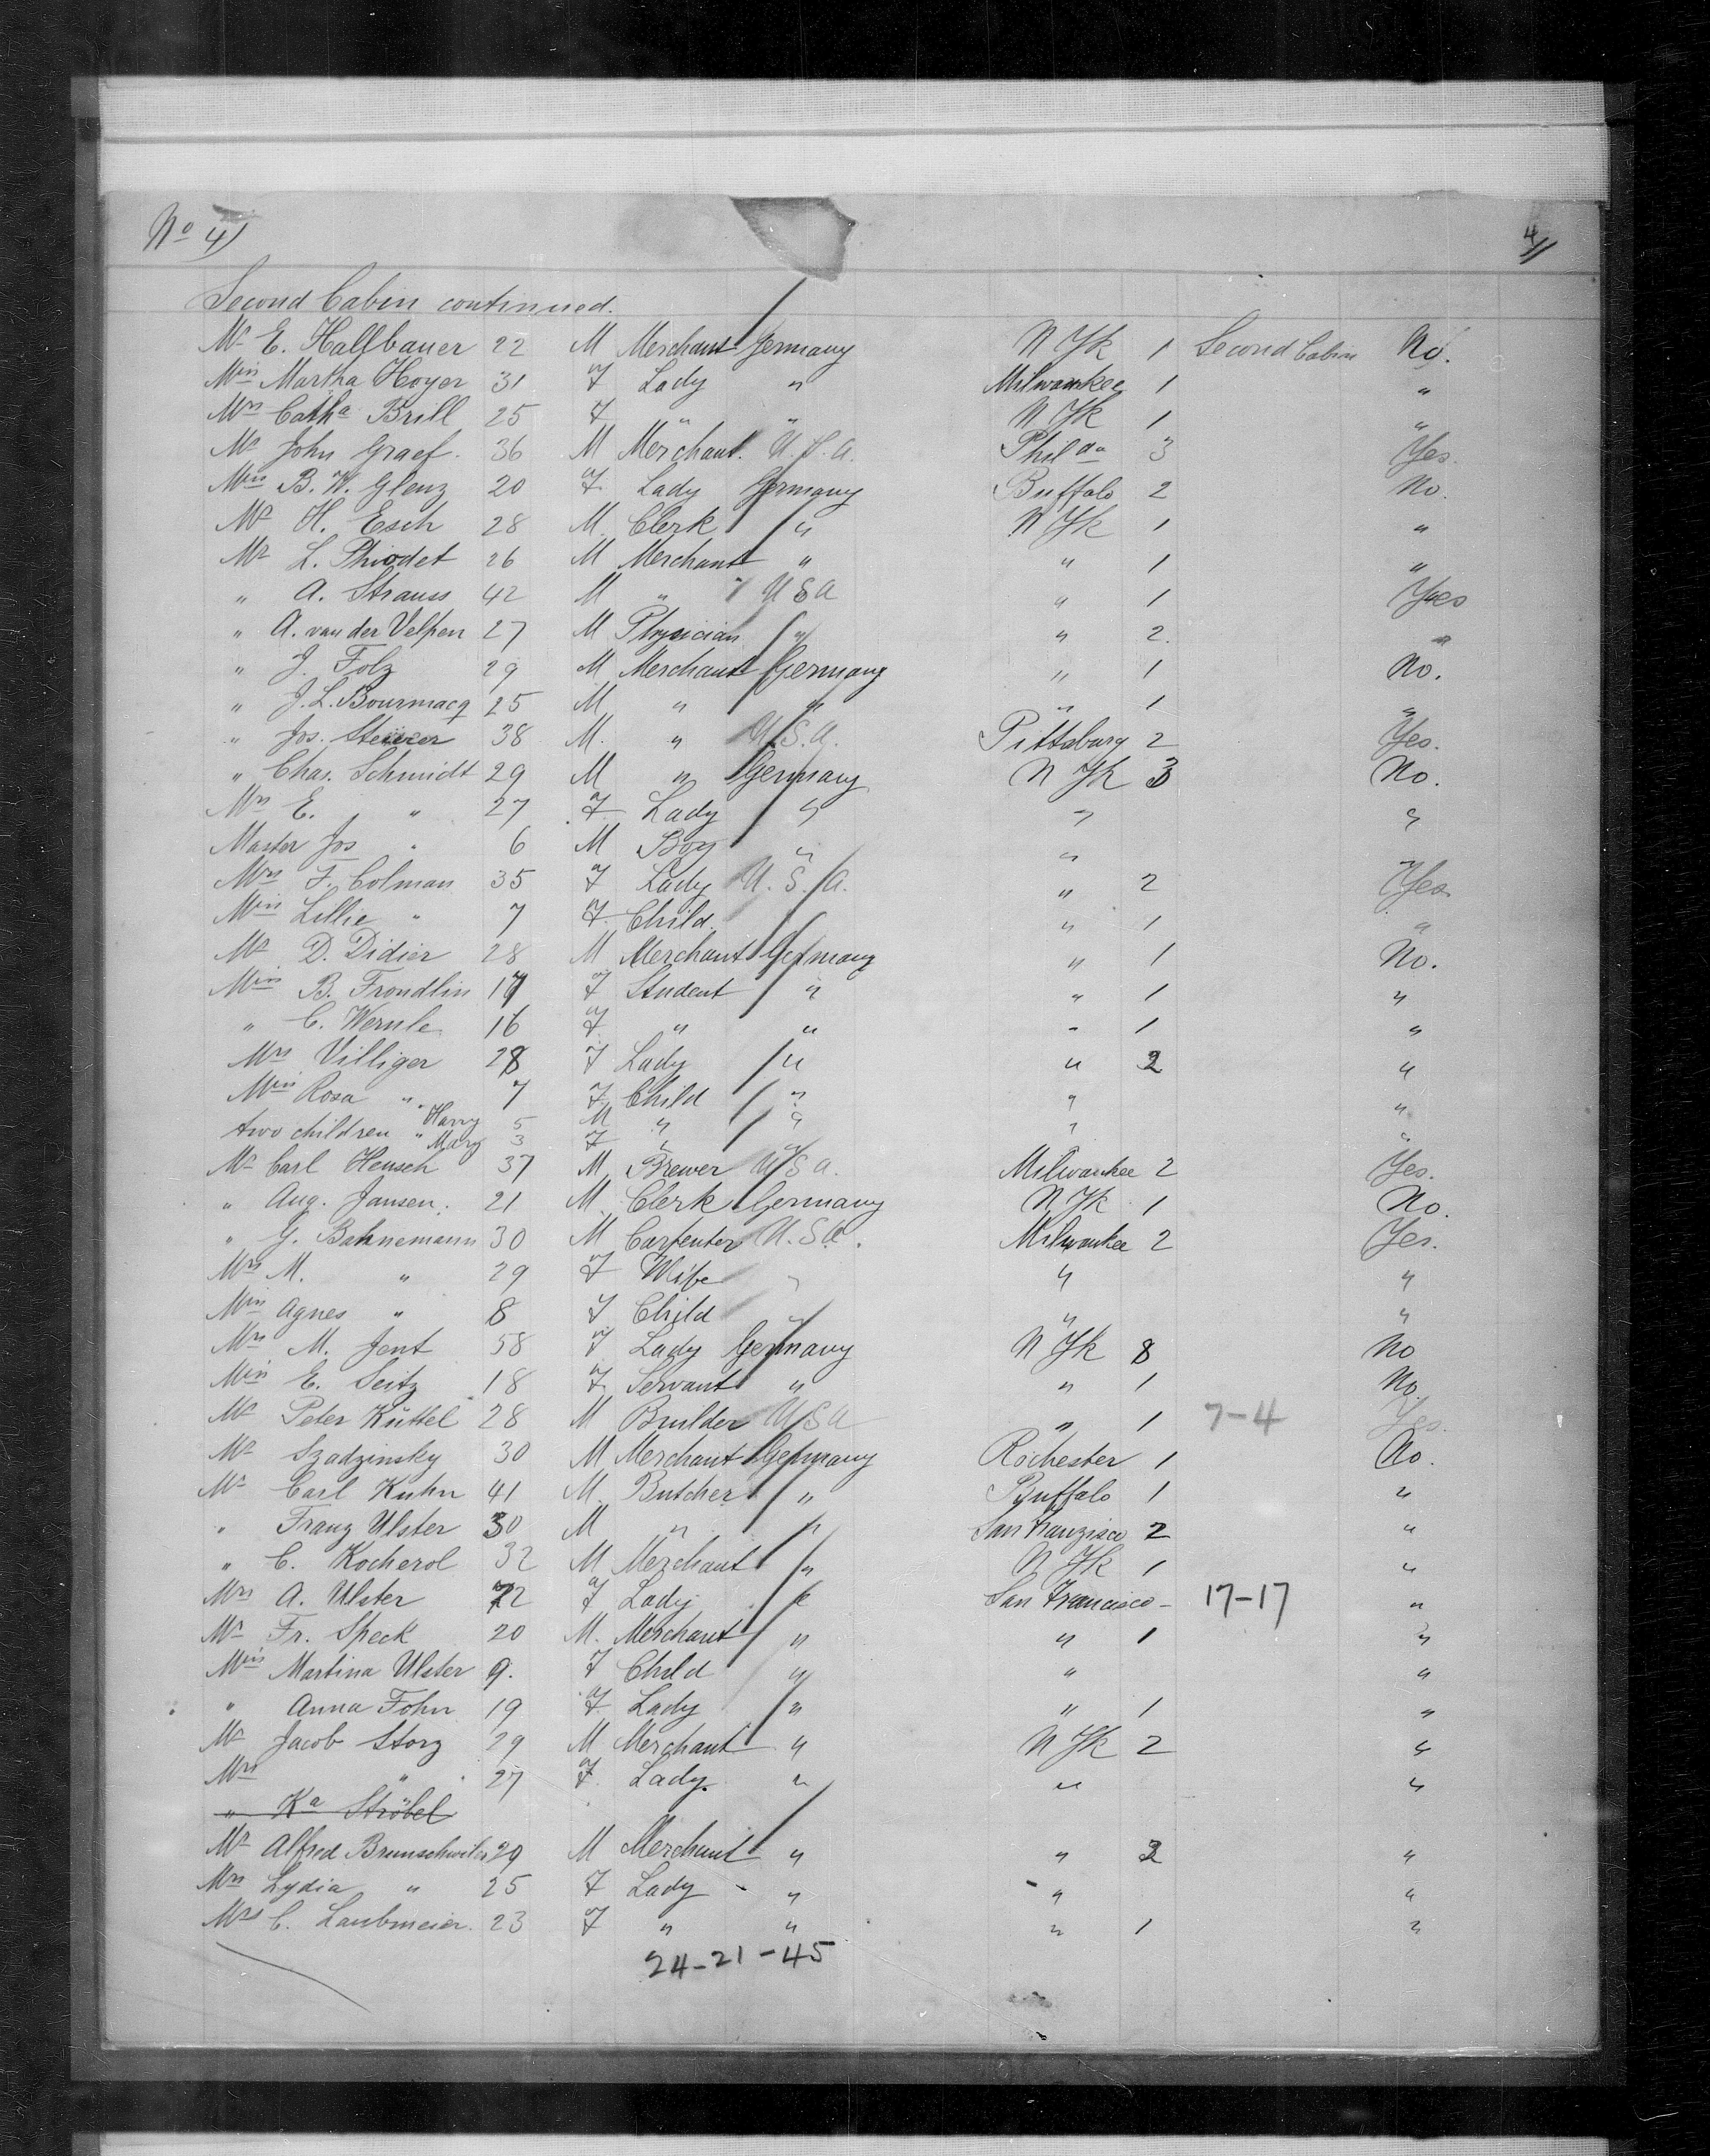 No 4) 4//
Second Cabin continued.
Mr E. Halfbauer 22 M Merchant Germany N Yk 1 Second Cabin No.
Miss Martha Hoyer 31 F Lady " Milwaukee 1 "
Mrs Catha Brill 25 F " " N Yk 1 "
Mr John Graef. 36 M Merchant. U.S.A. Philda 3 Yes.
Miss B. W. Glenz 20 F Lady Germany Buffalo 2 No.
Mr H. Esch 28 M. Clerk " N Yk 1 "
Mr L. Phiodet 26 M Merchant " " 1 "
" A. Strauss 42 M " USA " 1 Yes
" A. van der Velpen 27 M Physician " " 2. "
" J. Folz 29 M Merchant Germany " 1 No.
" J. L. Bourmacq 25 M " " " 1 "
" Jos. 38 M. " U.S.A. Pittsburg 2 Yes.
" Chas. Schmidt 29 M " Germany N Yk 3 No.
Mrs E. " 27 F Lady " " "
Master Jos " 6 M Boy " "
Mrs F. Colman 35 F Lady U.S.A. " 2 Yes
Miss Lillie " 7 F. Child. " 1 "
Mr D. Didier 28 M Merchant Germany " 1 No.
Miss B. Frondlin 17 F Student " " 1 "
" C. Wernle 16 F " " " 1 "
Mrs Villiger 28 F Lady " " 2 "
Miss Rosa " 7 F Child " " "
two children " Harry 5 M " " " "
" Mary 3 F " "
Mr Carl Hensch 37 M. Brewer USA. Milwaukee 2 Yes.
" Aug. Jansen. 21 M. Clerk Germany N Yk 1 No.
" G. Bahnemann 30 M Carpenter U.S.A. Milwaukee 2 Yes.
Mrs M. " 29 F Wife " " "
Miss Agnes " 8 F Child " " "
Mrs M. Jent 58 F Lady Germany N Yk 8 No
Miss E. Seitz 18 F Servant " " 1 No.
Mr Peter Küttel 28 M Builder USA " 1 7-4 Yes.
Mr Szadzinsky 30 M Merchant Germany Rochester 1 No.
Mr Carl Kuhn 41 M. Butcher " Buffalo 1 "
" Franz Ulster 30 M " " San Franzisco 2 "
" C. Kocherol 32 M Merchant " N Yk 1 "
Mrs A. Ulster 22 F Lady " San Francisco - 17-17 "
Mr Fr. Speck 20 M. Merchant " " 1 "
Miss Martina Ulster 9. F Child " " "
" Anna Fohn 19 F. Lady " " 1 "
Mr Jacob Storz 29 M Merchant " N Yk 2 "
Mrs " 27 F. Lady. " " "
" Ka Ströbel
Mr Alfred Brunschwiler 29 M Merchant " " 2 "
Mrs Lydia " 25 F Lady " " "
Mrs C. Laubmeier. 23 F " " " 1 "
24-21-45